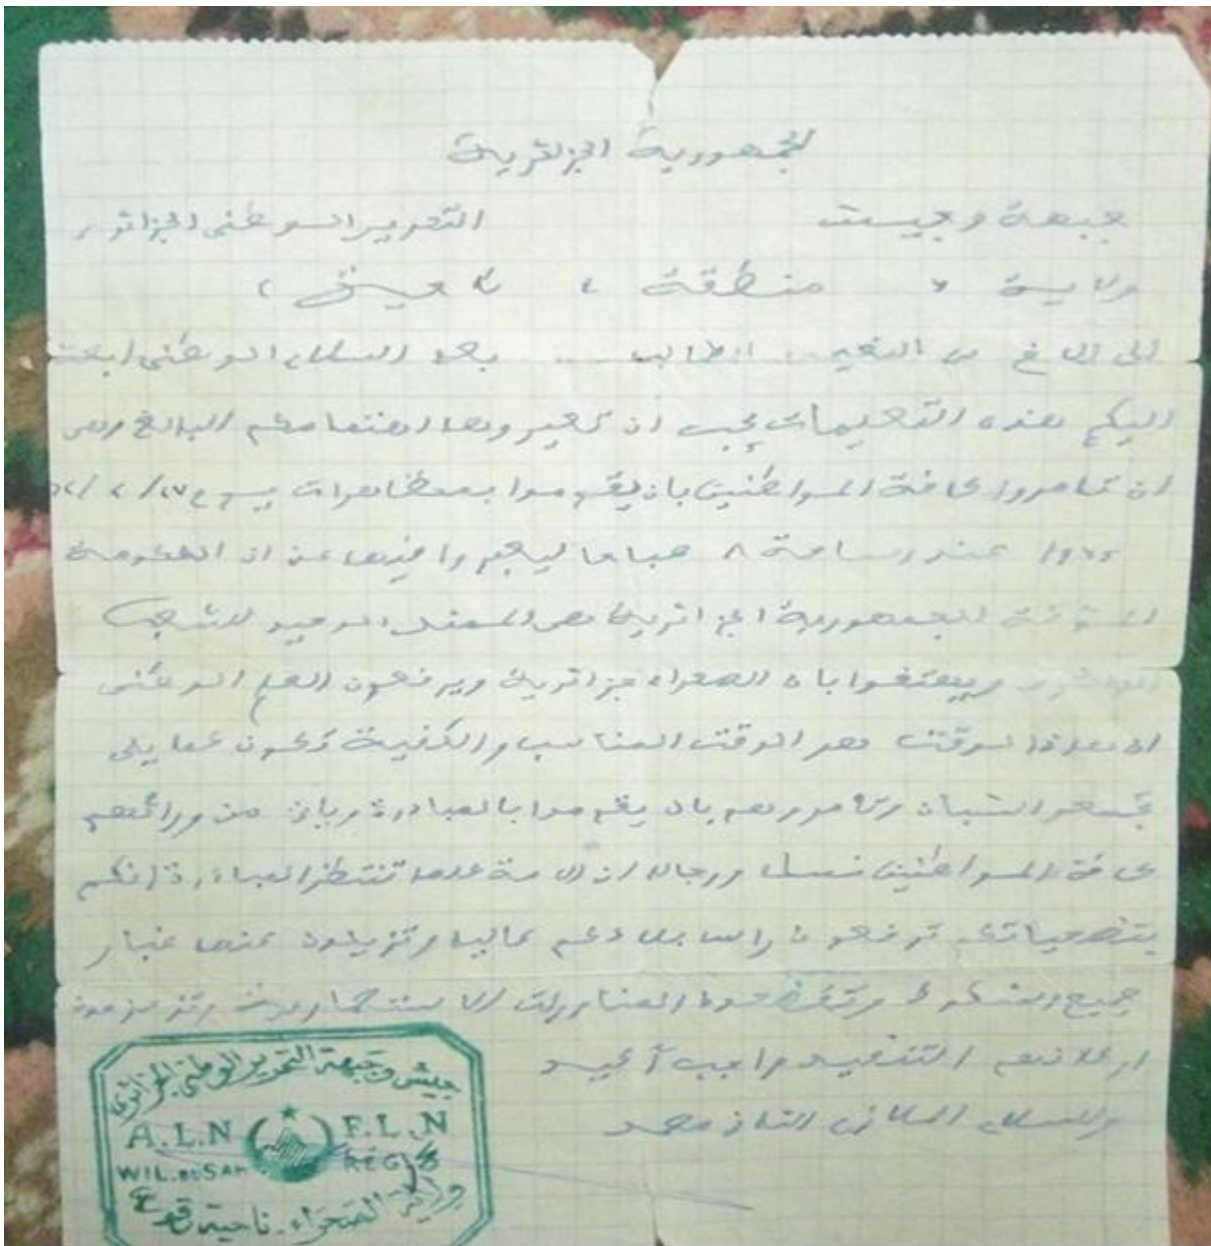 الجمهورية الجزائرية
جبهة وجيش التحرير الوطني الجزائري
ولاية ٦ منطقة ناحية
الى الاخ بن النعيمي الطالب .... بعد السلام الوطني ابعث
اليكم هذه التعليمات يجب ان تعيروها اهتمامكم البالغ وهي
ان تامروا كافة المواطنين بان يقوموا بمظاهرات يوم ٢٧/٢/
١٩٦٢ عند ساعة ٨ صباحا ليعبروا فيها عن ان الحكومة
المؤقتة للجمهورية الجزائرية هي الوحيد للشعب
ويهتفوا بان الصحراء جزائرية ويرفعون العلم الوطني
ان هذا الوقت هو الوقت المناسب والكفية تكون كما يلي
الشبان وتامروهم بان يقوموا بالمبادرة من ورائهم
كافة المواطنين نساء ورجالا ان الامة كلها تنتظر انكم
بتضحياتكم ترفعون راس بلادكم عاليا وتزيلون عنها غبار
المناورات الاستعمارية
التنفيد واجب أكيد
والسلام الملازم الثاني محمد
جيش وجبهة التحرير الوطني الجزائري
A.L.N F.L.N
WIL. DU SAH REG
ولاية الصحراء. ناحية